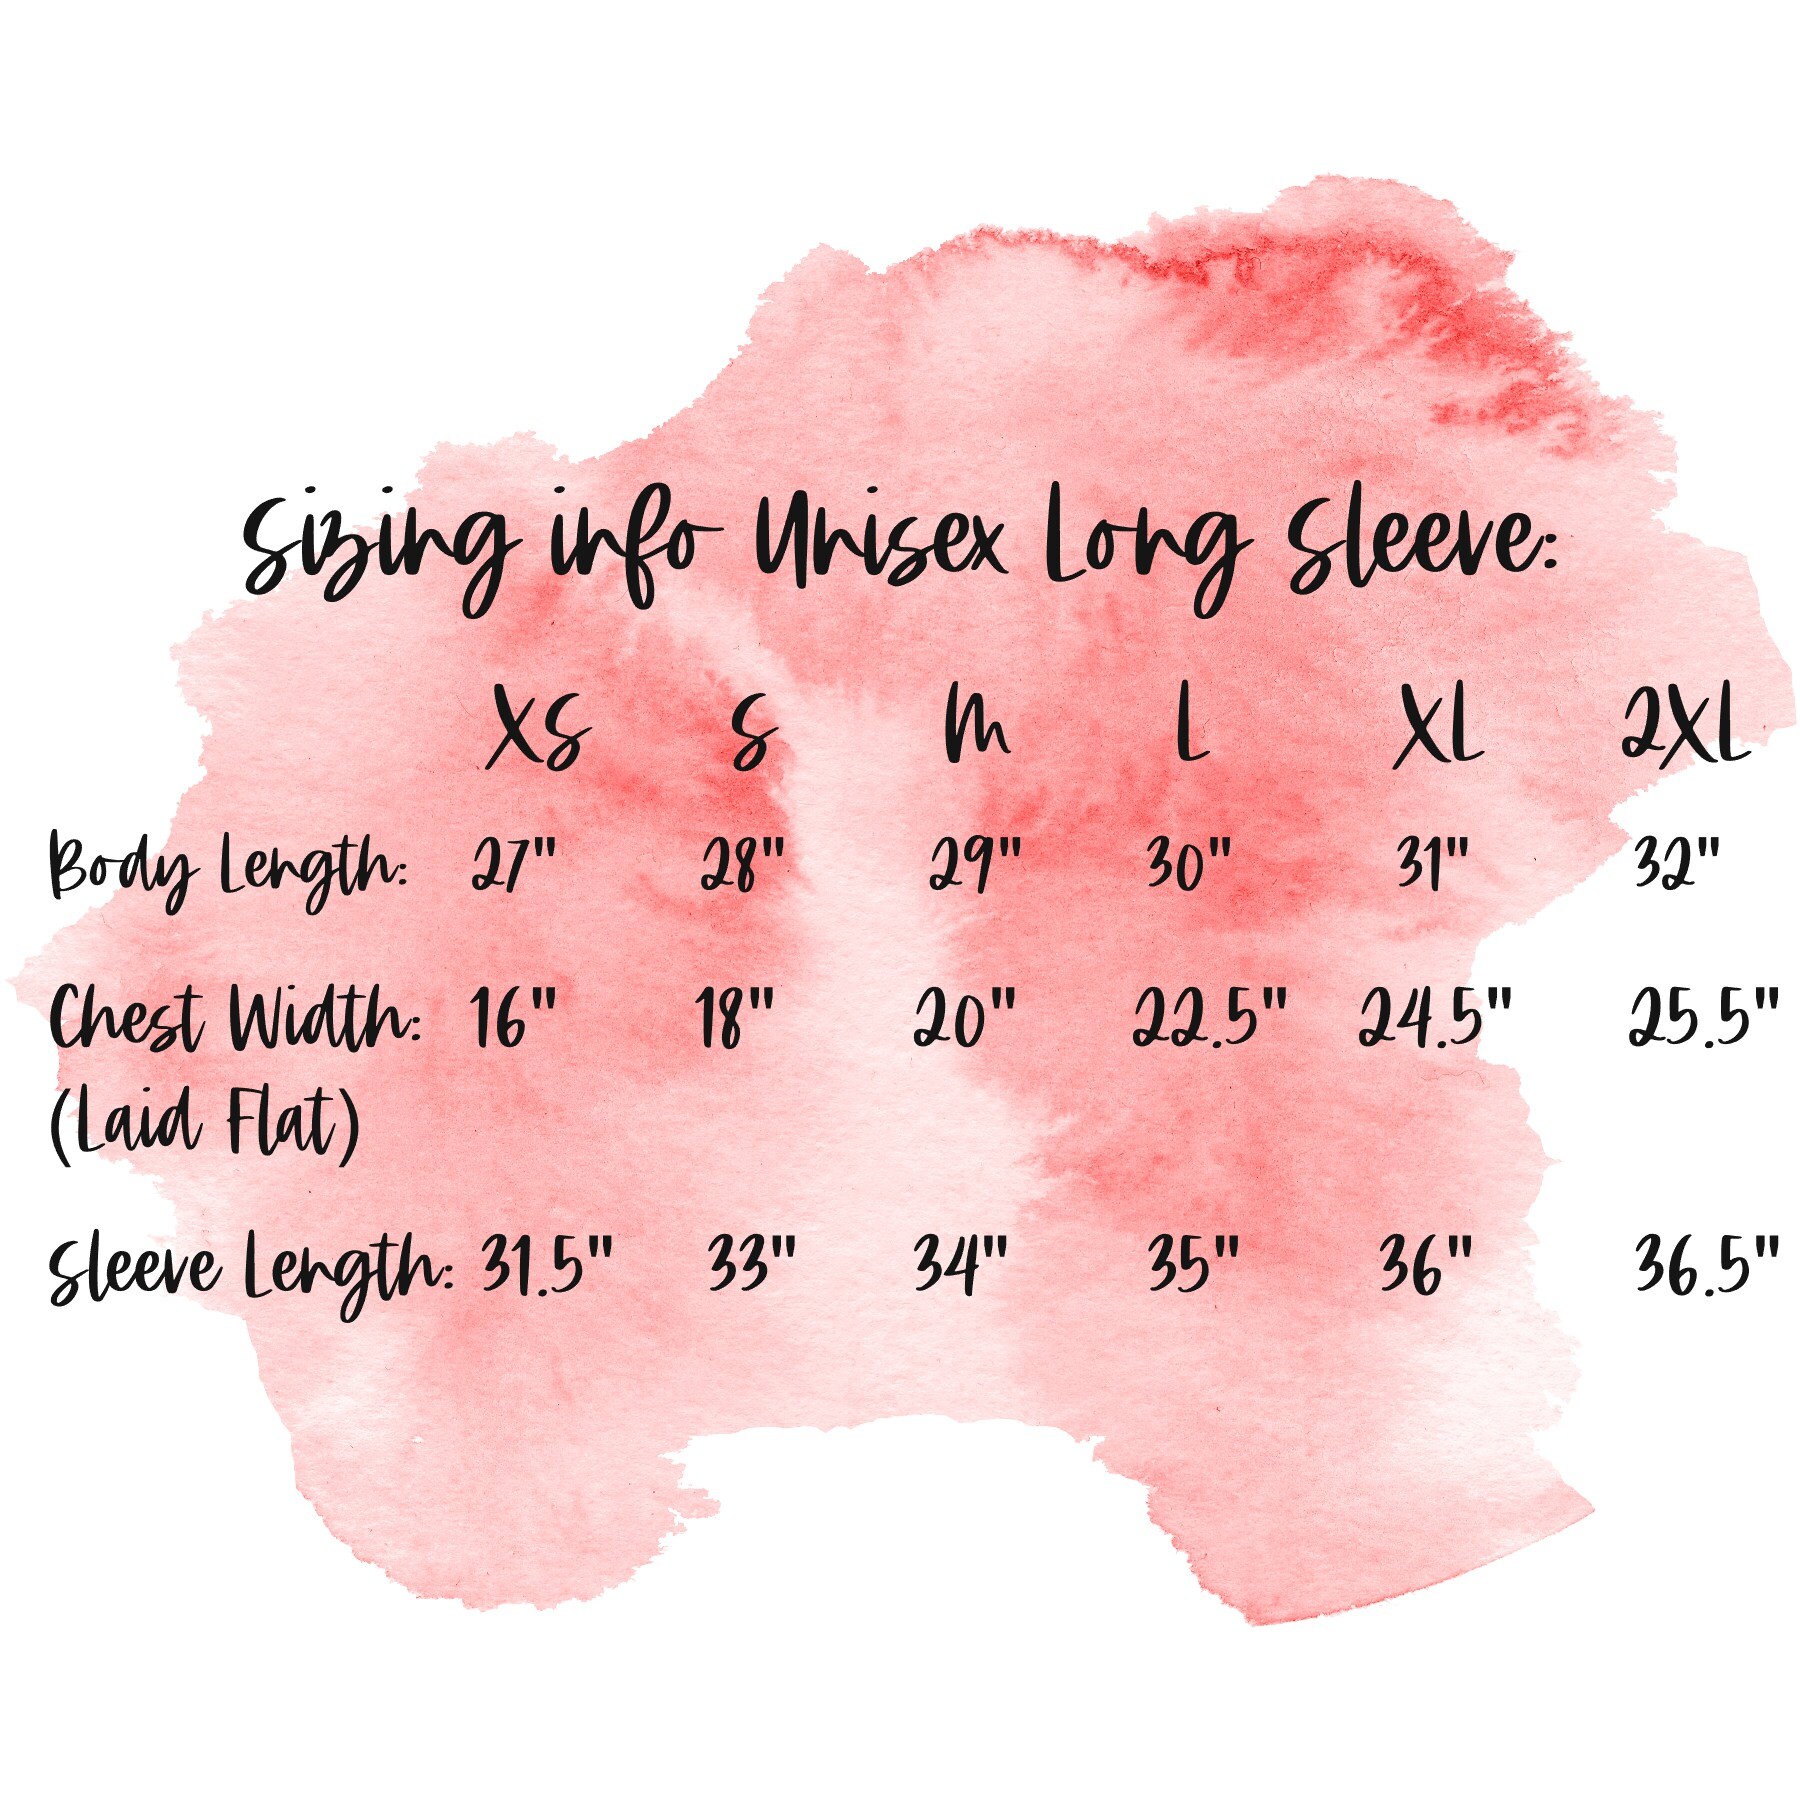 Sizing info Unisex Long Sleeve:
XS S M L XL 2XL
Body Length: 27" 28" 29" 30" 31" 32"
Chest Width: 16" 18" 20" 22.5" 24.5" 25.5"
(Laid Flat)
Sleeve Length: 31.5" 33" 34" 35" 36" 36.5"